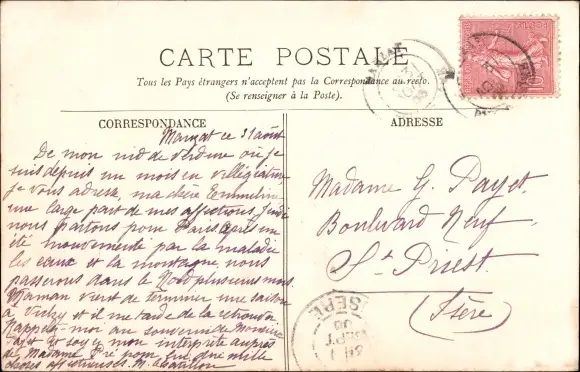 CARTE POSTALE
Tous les Pays étrangers n'acceptent pas la Correspondance au recto.
(Se renseigner à la Poste).
CORRESPONDANCE
ADRESSE
ce 31 août
De mon nid de verdure où je
suis depuis un mois en villégiature
je vous adresse, ma chère
une large part de mes affections. Jeudi
nous partons pour Paris. Après un
été mouvementé par la maladie
les eaux et la montagne, nous
passerons dans le Nord plusieurs mois.
Maman vient de terminer une saison
à Vichy et il me tarde de la retrouver.
Rappelez-moi au souvenir de Monsieur
et soyez mon interprète auprès
de Madame Pré pour
choses affectueuses. M.
Madame G. Payet
Boulevard Neuf
St Priest
(Isère)
SEPT